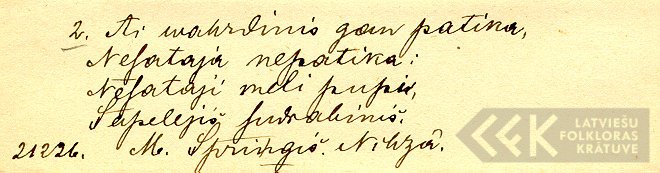 2. Ai wahrdinis gan patika,
Nesataja nepatika:
Nesataji meli pupis,
Sapelejis sudrabinis.
21226. M. Spriņģis. Nihzā.
LATVIEŠU
FOLKLORAS
KRĀTUVE